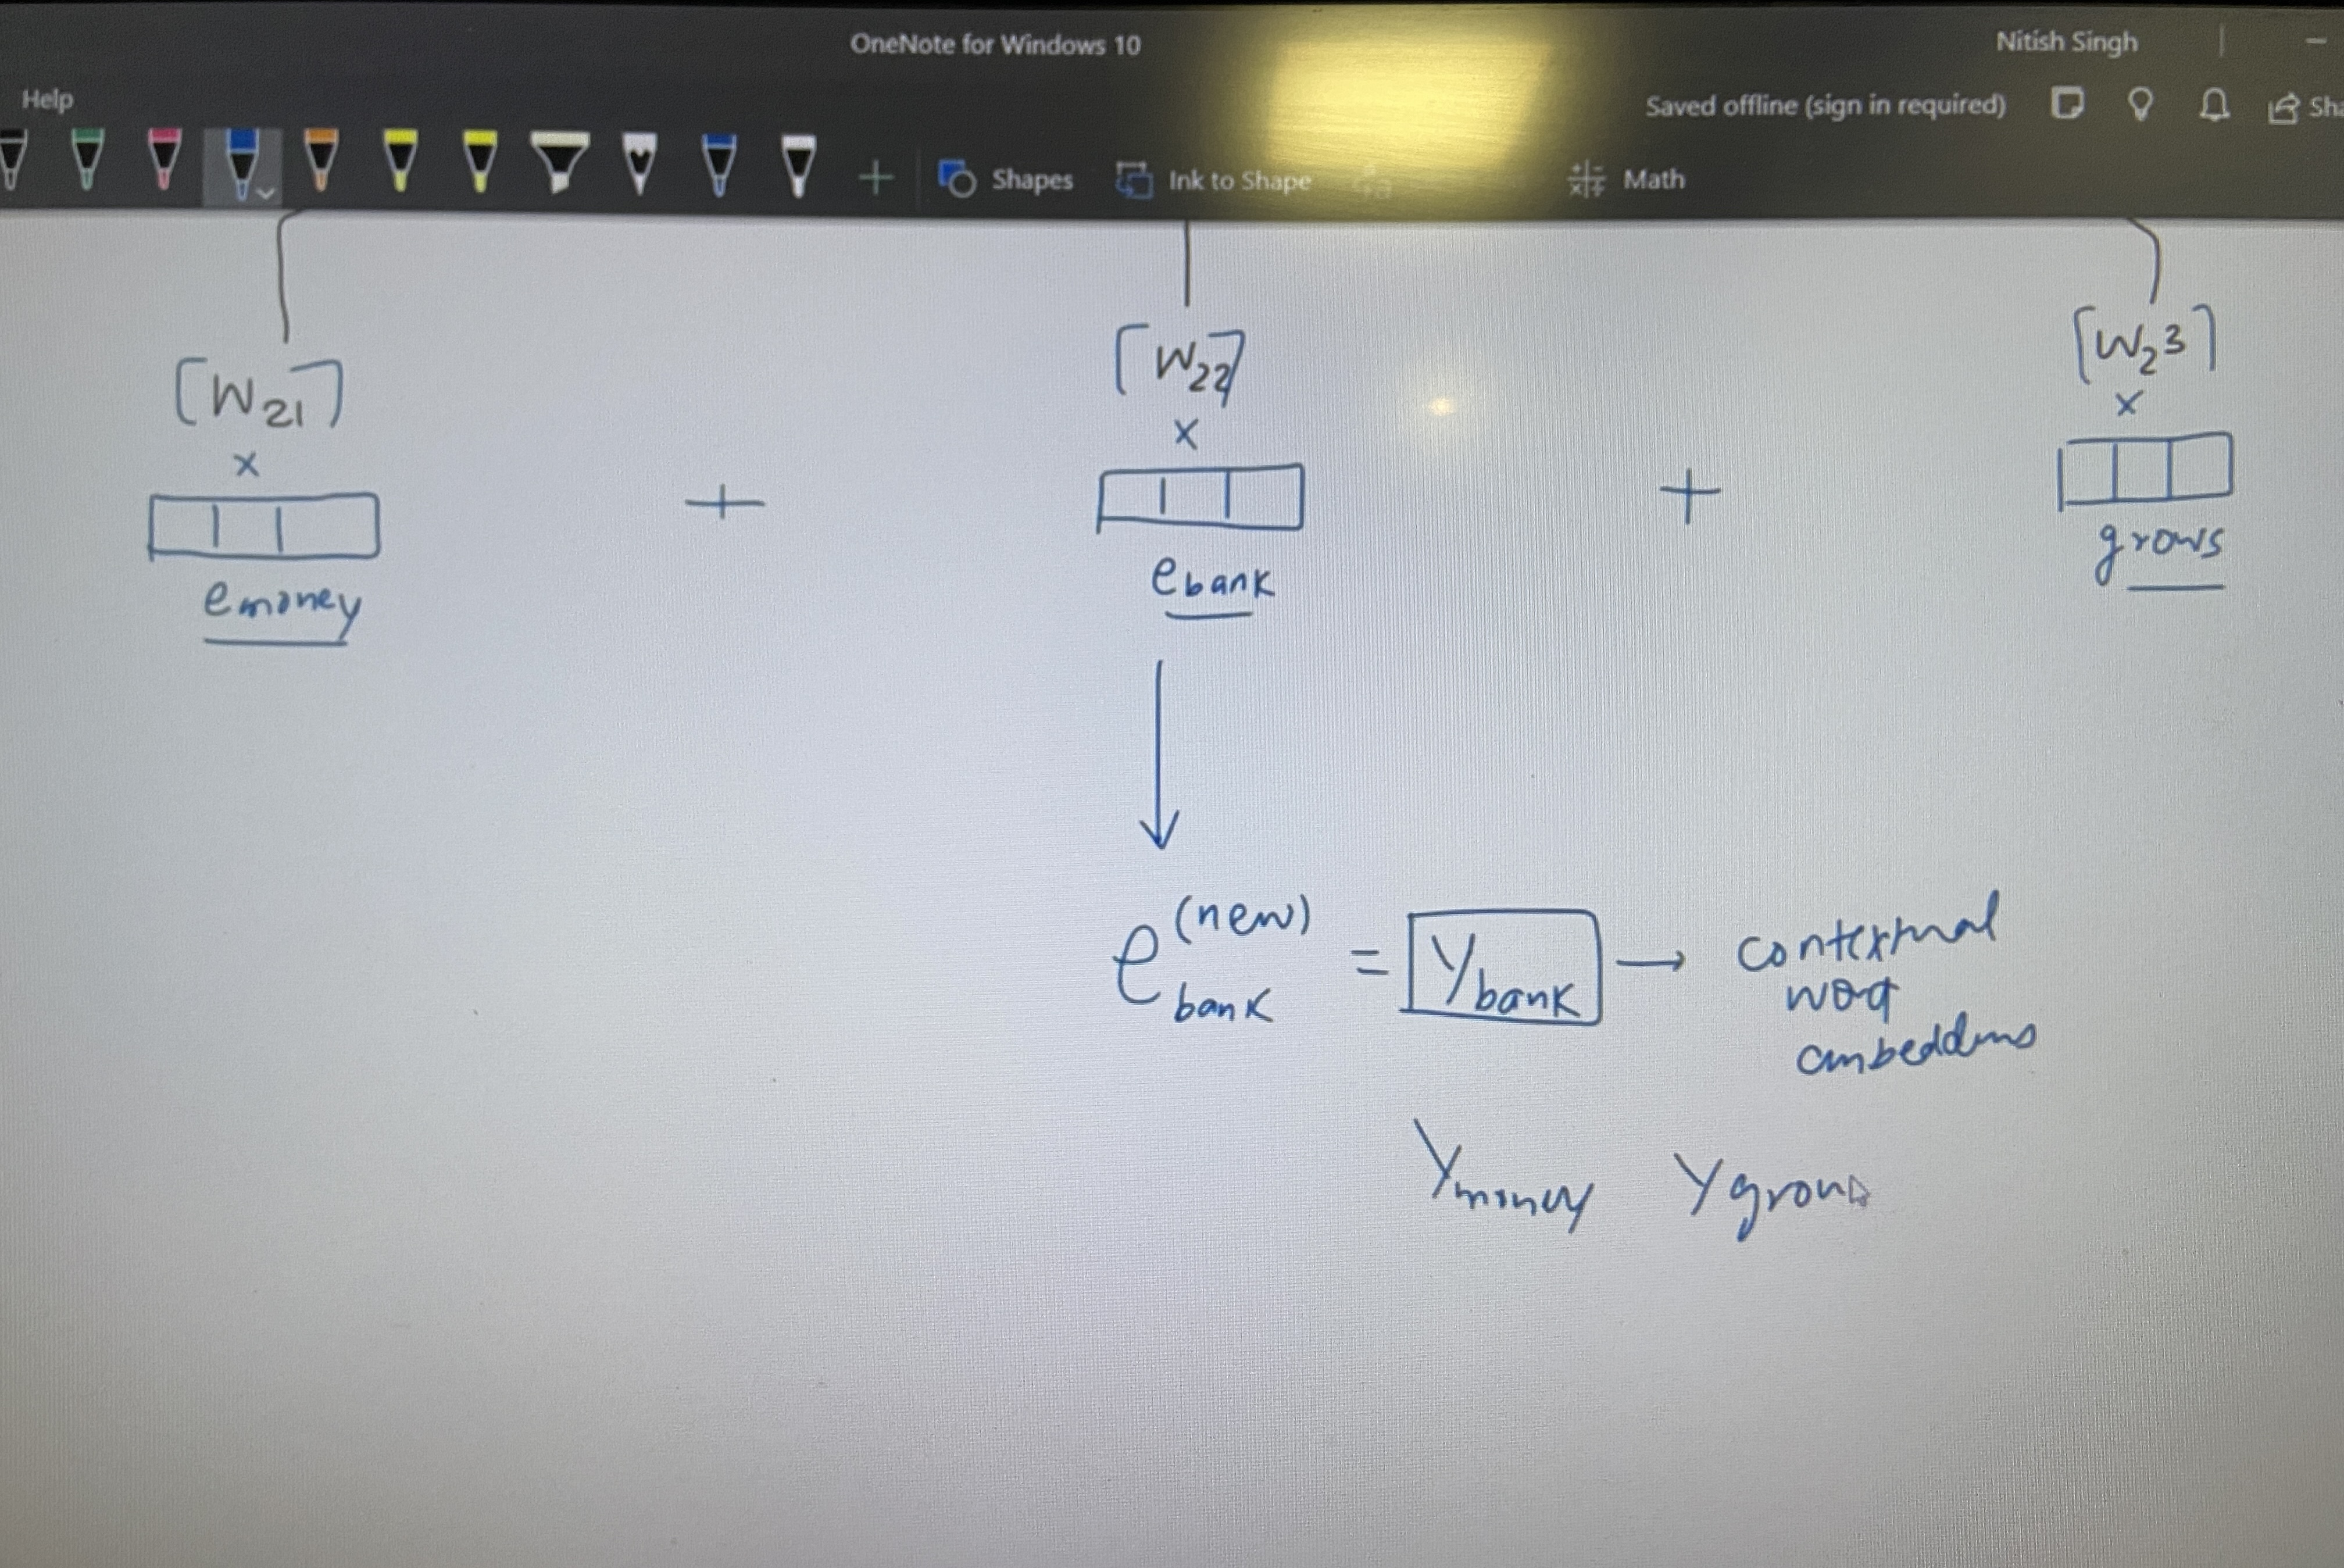 OneNote for Windows 10
Nitish Singh
Help
Saved offline (sign in required)
Sha
Shapes
Ink to Shape
Math
[W21]
[W22]
[W23]
x
x
x
+
+
emoney
ebank
grows
e(new)bank = Ybank → contextual
word
embeddings
Ymoney Ygrows